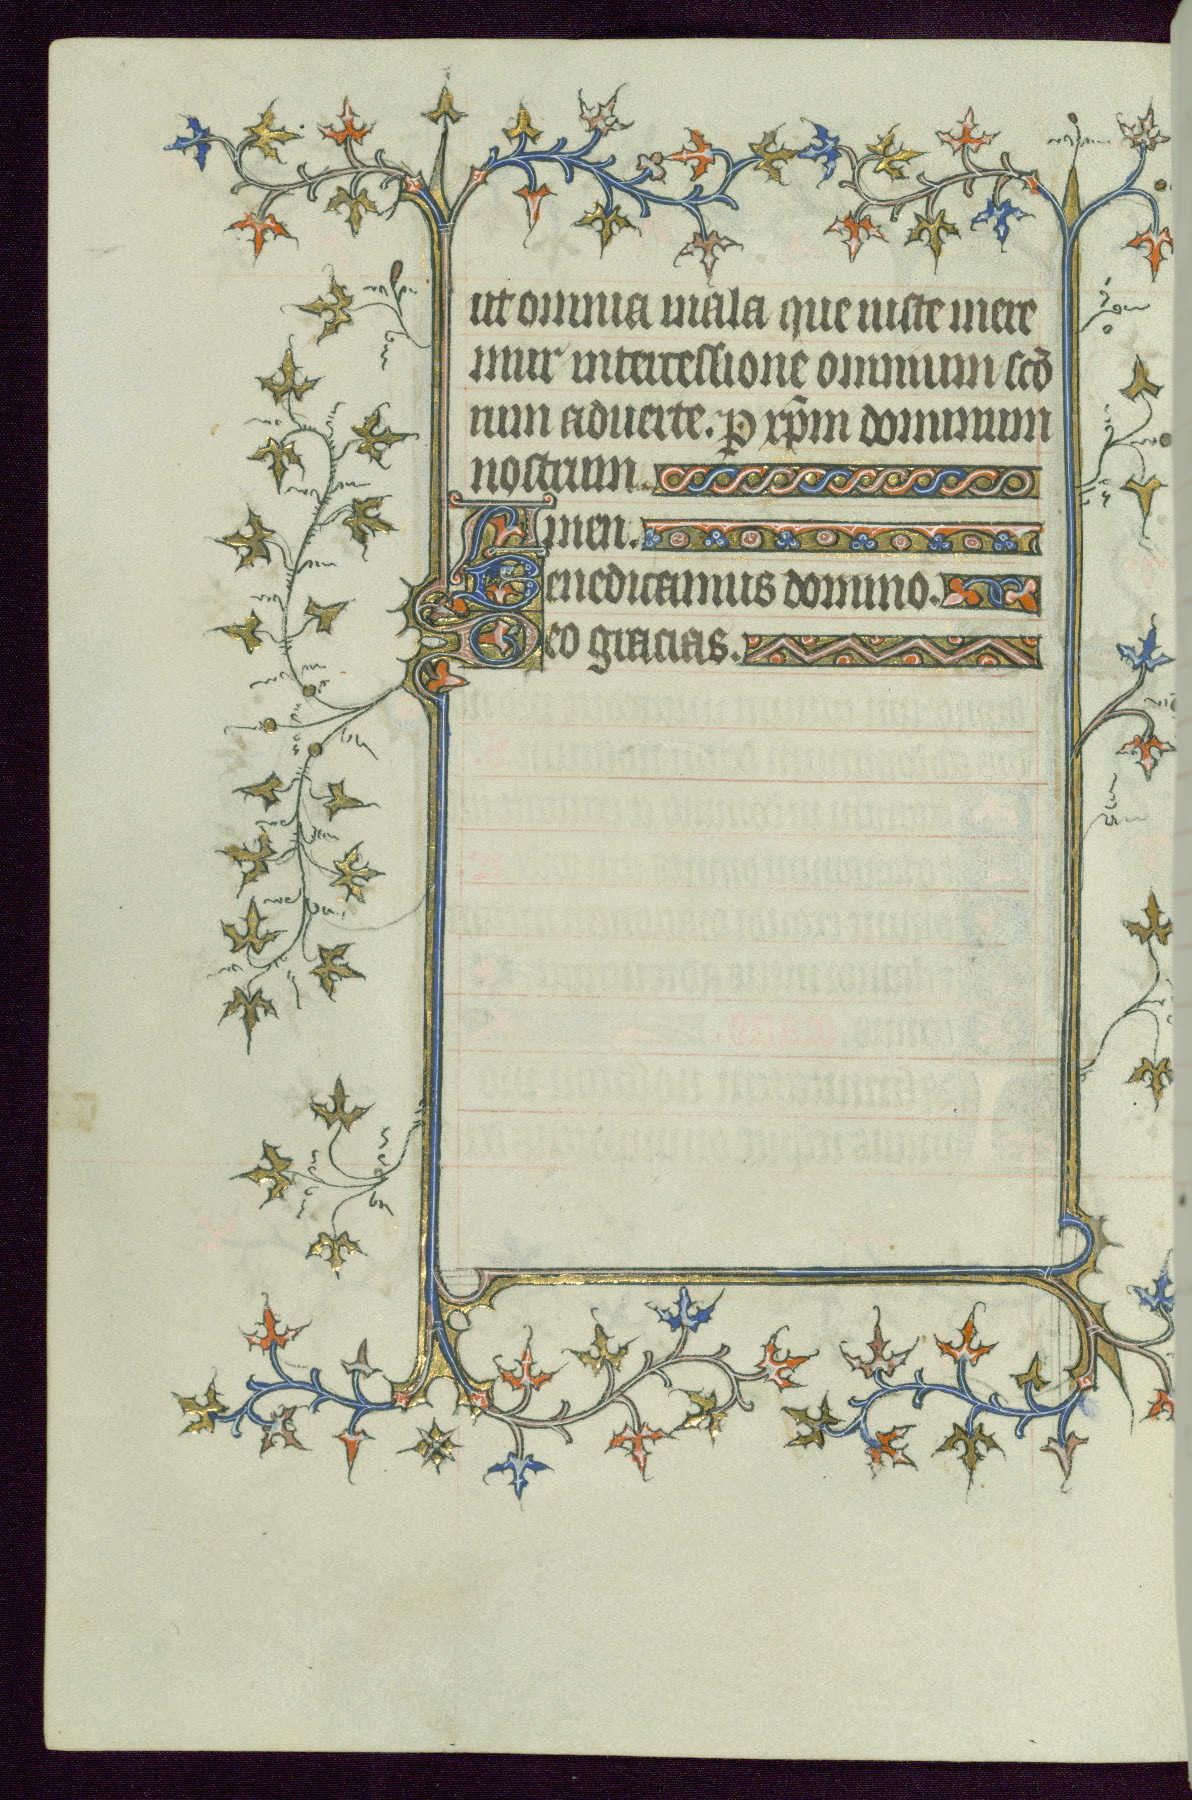 ut omnia mala que iuste mere
mur intercessione omnium scõ
rum aduerte. p xp̃m dominum
nostrum.
Amen.
Benedicamus domino.
Deo gracias.